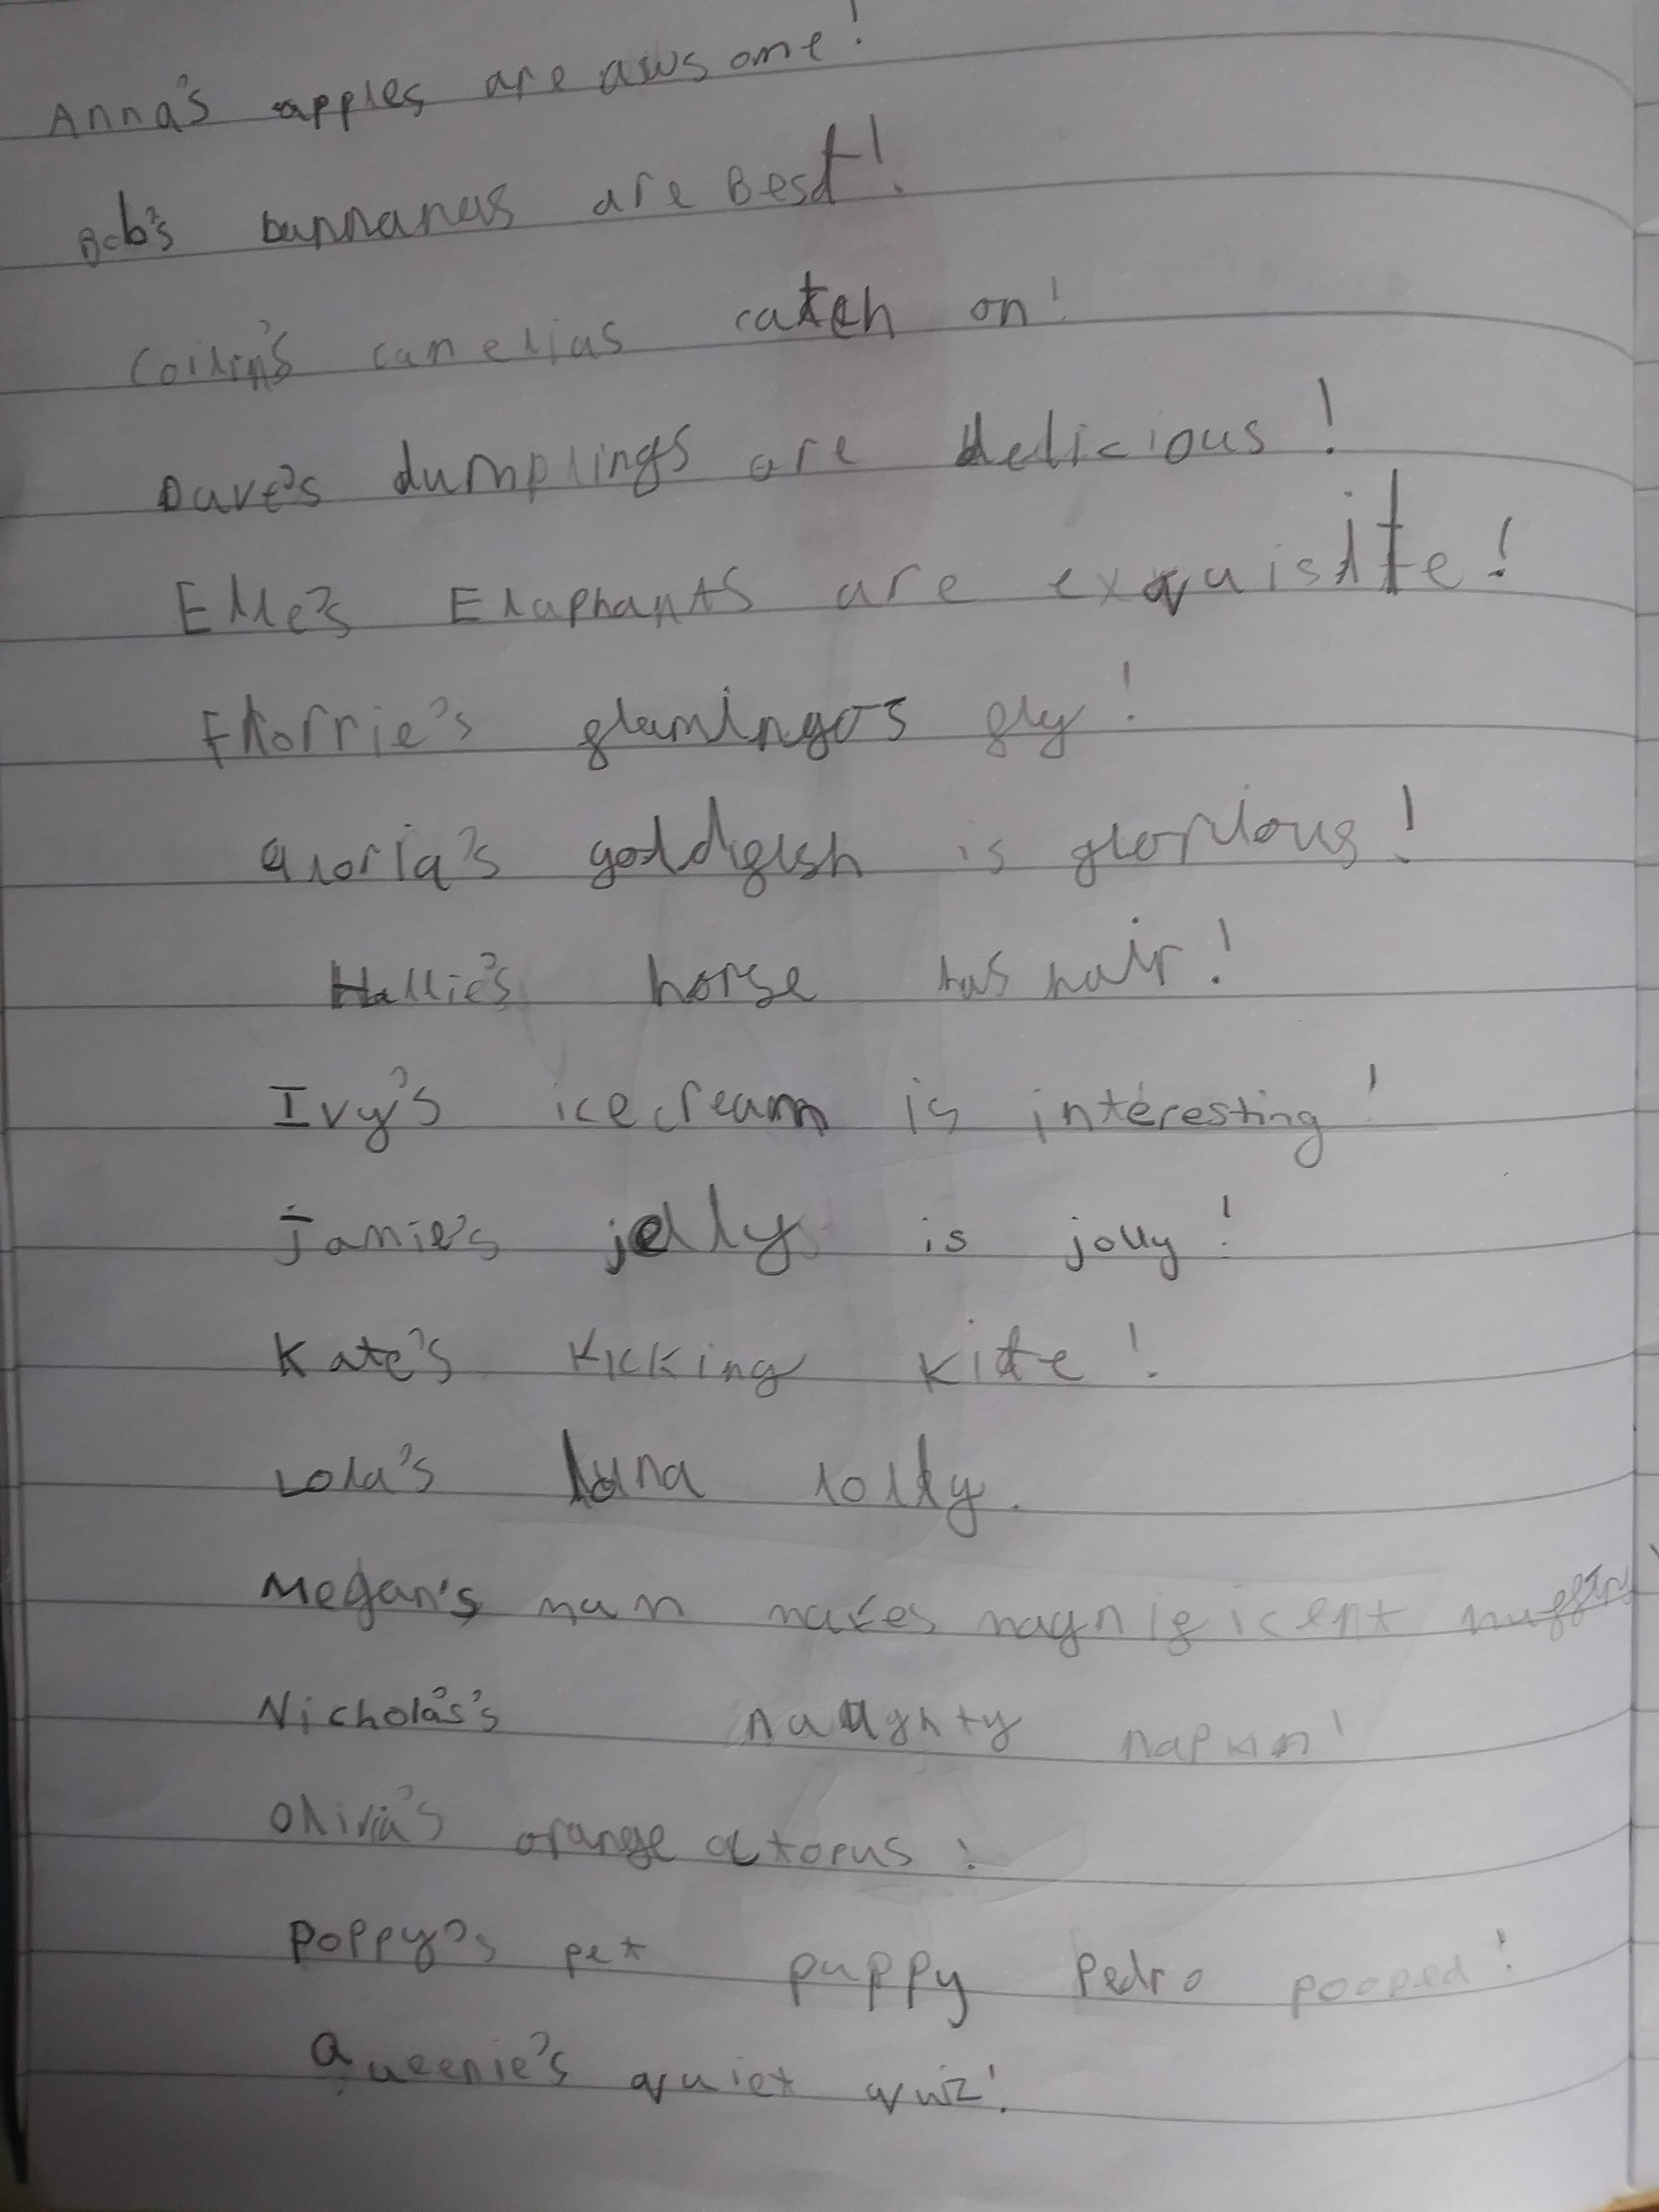 Anna's apples are awsome!
Bob's bannanas are Best!
Coilin's camelias catch on!
Dave's dumplings are delicious!
Elle's Elaphants are exquisite!
Florrie's flamingos fly!
Gloria's goldfish is glorious!
Hallie's horse has hair!
Ivy's icecream is interesting!
Jamie's jelly is jolly!
Kate's kicking kite!
Lola's luna lolly.
Megan's mum makes magnificent muffins
Nicholas's naughty napkin!
Olivia's orange octopus!
Poppy's pet puppy Pedro pooped!
Queenie's quiet quiz!